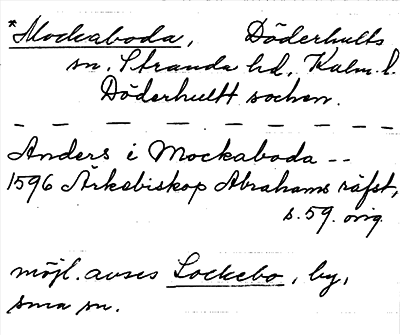 *Mockaboda, Döderhults
sn. Stranda hd, Kalm. l.
Döderhullt sochen.
Anders i Mockaboda --
1596 Ärkebiskop Abrahams räfst,
s. 59. orig.
möjl. avses Lockebo, by,
sma sn.